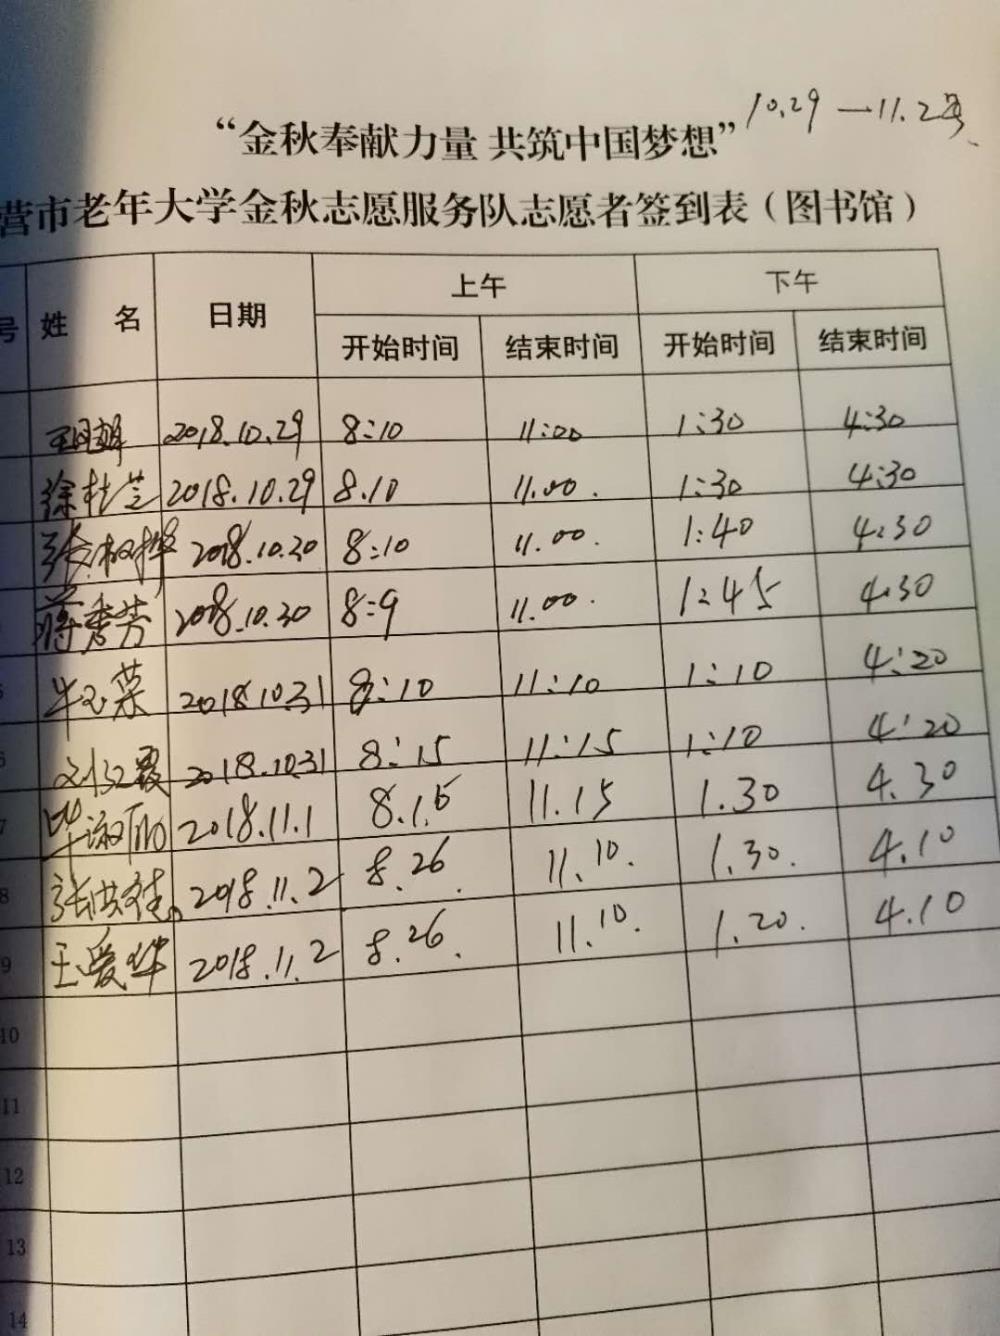 10.29 — 11.2号
“金秋奉献力量 共筑中国梦想”
营市老年大学金秋志愿服务队志愿者签到表（图书馆）
号 姓 名 日期 上午 下午
开始时间 结束时间 开始时间 结束时间
2018.10.29 8:10 11:00 1:30 4:30
徐桂兰 2018.10.29 8.10 11.00. 1:30 4:30
2018.10.30 8:10 11.00. 1:40 4:30
蒋秀芳 2018.10.30 8:9 11.00. 1:45 4.30
5 牛玉荣 2018.10.31 8:10 11:10 1:10 4:20
6 2018.10.31 8:15 11:15 1:10 4:20
7 2018.11.1 8.15 11.15 1.30 4.30
8 2018.11.2 8.26. 11.10. 1.30. 4.10
9 王爱华 2018.11.2 8.26. 11.10. 1.20. 4.10
10
11
12
13
14